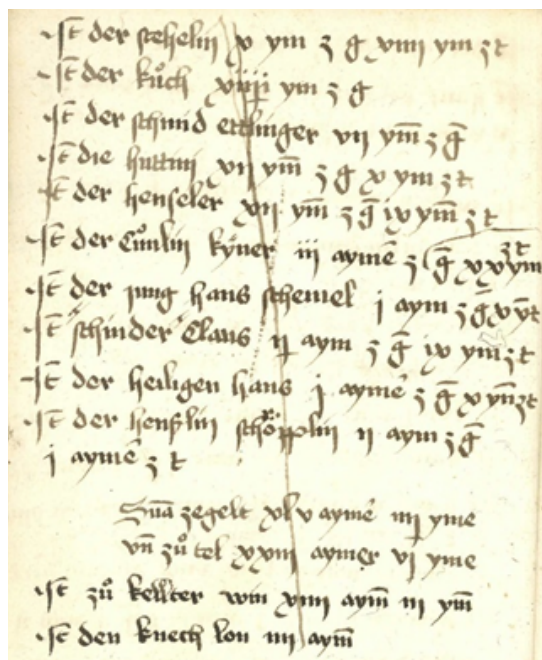 ·It der stehelin x ym z g̅ xiiij ym z t
·It der kůch xiiij ym z g̅
·It der schmid ettlinger vij ym̅ z g̅
·It die huttini vij ym̅ z g̅ x ym z t
·It der henseler xij ym̅ z g̅ ix ym̅ z t
·It der Cůnlin kyner iij aymē z g̅ xx ym z t
·It der jung hans schemel j aym z g̅ x ym̅ z t
·It schinder Claus ij aym z g̅ ix ym z t
·It der heiligen hans j aymē z g̅ x ym̅ z t
·It der henßlin schöpplin ij aym z g̅
j aymē z t
Sūa zegelt xlv aymē iij yme
vn̅ zů tel xxiij aymer vj yme
·It zů kellter win xiiij aym̅ iij ym̅
·It den knech lon iiij aym̅